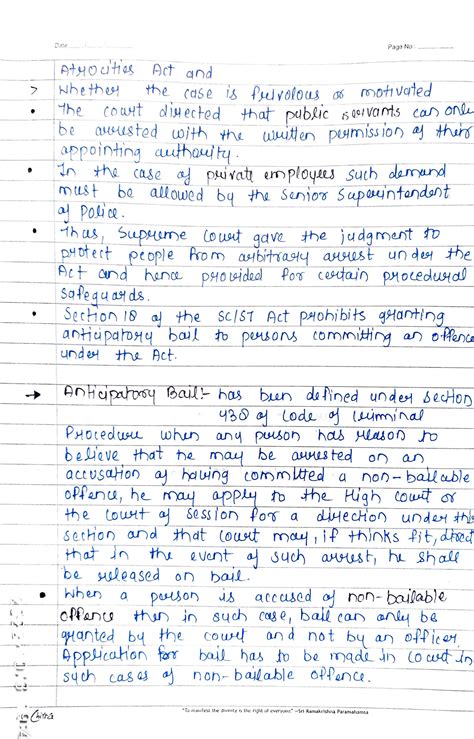 Date
Page No:
Atrocities Act and
> Whether the case is frivolous or motivated
• The court directed that public servants can only
be arrested with the written permission of their
appointing authority.
• In the case of private employees such demand
must be allowed by the Senior Superintendent
of Police.
• Thus, Supreme Court gave the judgment to
protect people from arbitrary arrest under the
Act and hence provided for certain procedural
safeguards.
• Section 18 of the SC/ST Act prohibits granting
anticipatory bail to persons committing an offence
under the Act.
→ Anticipatory Bail:- has been defined under section
438 of Code of Criminal
Procedure when any person has reason to
believe that he may be arrested on an
accusation of having committed a non-bailable
offence, he may apply to the High Court or
the court of session for a direction under this
section and that court may, if thinks fit, direct
that in the event of such arrest, he shall
be released on bail.
• When a person is accused of non-bailable
offence then in such case, bail can only be
granted by the court and not by an officer.
Application for bail has to be made in court in
such cases of non-bailable offence.
"To manifest the divinity is the right of everyone." -Sri Ramakrishna Paramahamsa
Chitra